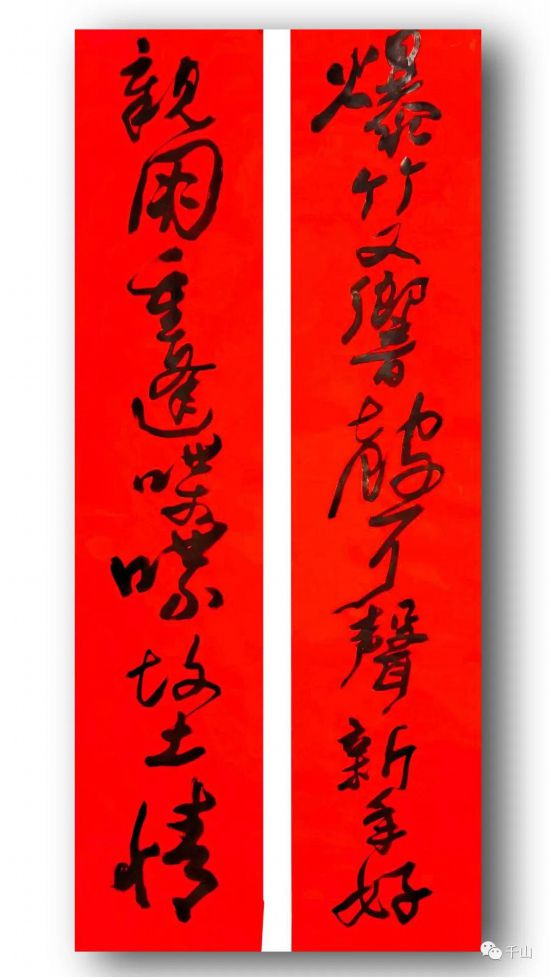 爆竹又響皷聲新年好
親朋重逢喋喋故土情
千山